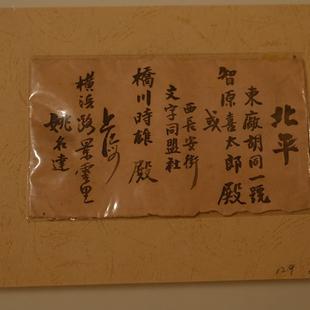 北平
東廠胡同一號
智原喜太郎殿
或
西長安街
文字同盟社
橋川時雄 殿
上海
橫浜路景雲里
姚名達
129